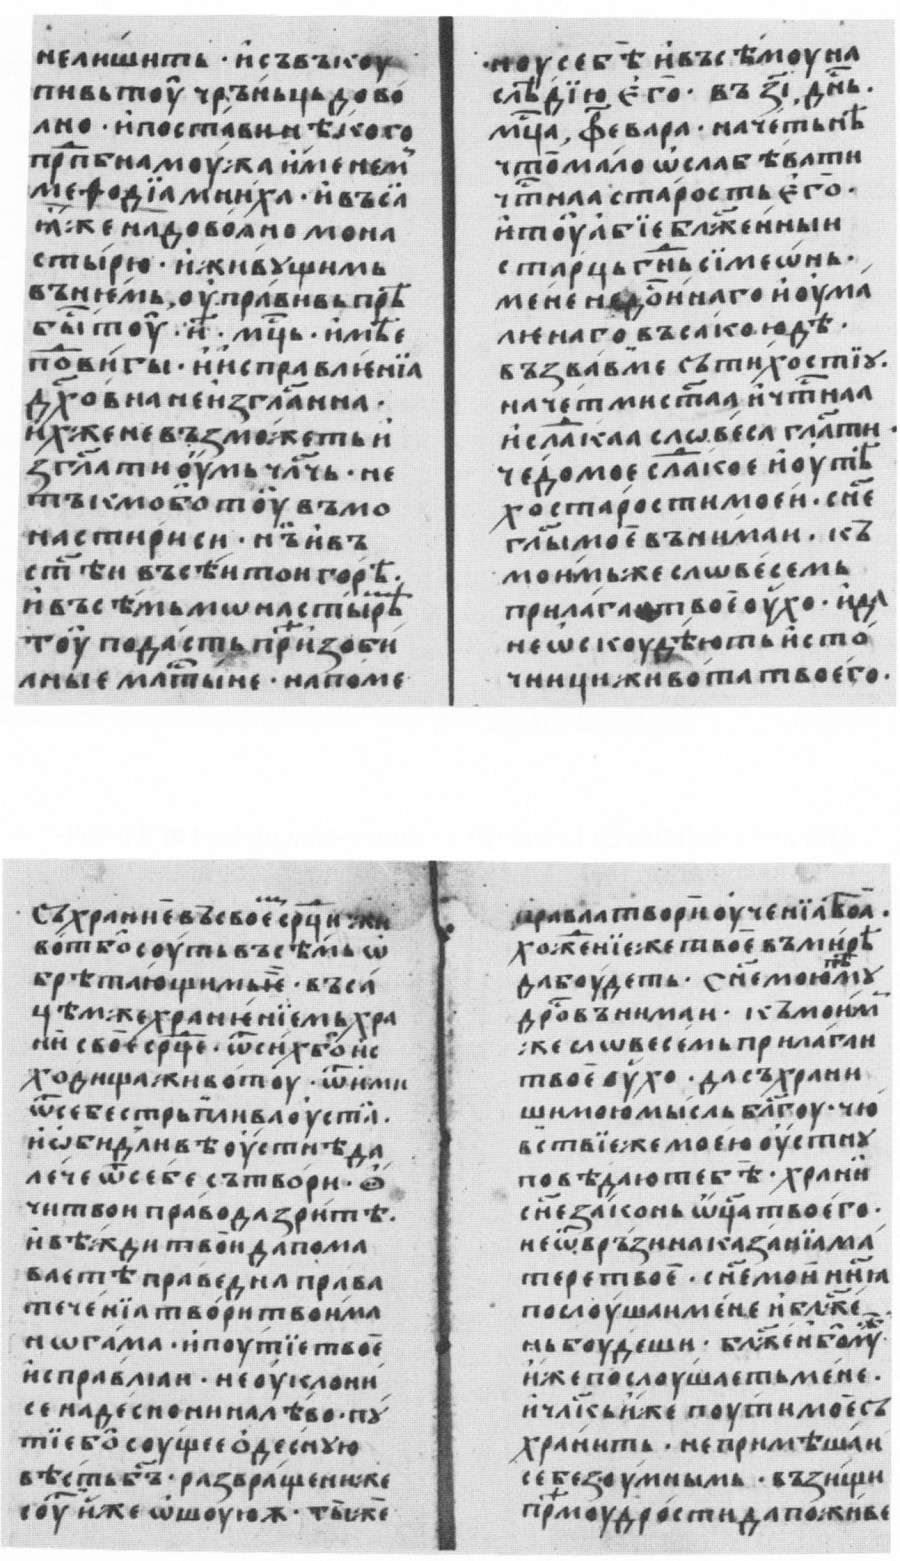 нелишить · и съвькоу
пивь тоу̑ чръньць дово
лно · и постави нѣкого
прⷣпбна моужа именемⸯ
меѳодїа мниха · и въсѧ
ꙗ҆же на доволно мона
стырю · и живущимь
въ нѥмь, оу҆правивь прѣ
бы́ тоу̑ · и҃ · мц҃ь · имѣе
по́виги · и исправлѥнїа
дх҃овна неизгл҃анна ·
ихже невъзможеть и
згл҃ати оу҆мь чл҃чь · не
тъкмо бо тоу̑ въ мо
настири си · нъ и въ
ст҃ѣи въсѣи тои горѣ.
и въсѣмь мѡнастырѥⷨ
тоу̑ подасть прⷣизоби
лные млⷭ҇тыне · напоме
ноу себѣ и въсѣмоу на
слѣдїю є҆го · въ з҃і, дн҃ь.
мц҃а, феѵвара · начеть нѣ
что мало ѡслабѣвати
чⷭ҇тнаа старость є҆го ·
и тоу̑ абїе блⷤенныи
старць гн҃ь сїмеѡнь ·
мене недоⷭ҇инаго и оума
лѥнаго въсакоюдѣ .
възвав ме съ тихостїу.
начет ми ст҃аа и чⷭ҇тнаа
и слаⷣкаа слѡвеса гл҃ати ·
чедо мое слаⷣкое и оутѣ
хо старости моеи · сн҃е
гл҃ы мое въниман · къ
моимьже слѡвесемь
прилагаи твое оу҆хо · и да
не ѡскоудѣють исто
чници живота твоего.
Съхрани е въ свое срⷣци жи
вот бо соуть въсѣмь ѡ
брѣтающимь е · въса
цѣмже хранѥнїемь хра
ни свое срⷣце · ѿ сих бо ис
ходища животоу · ѿими
ѿ себе стрьпливаа оуста.
и ѡбидливѣ оустнѣ да
лече ѿ себе сътвори · Ѻ
чи твои право да зритѣ.
и вѣжди твои да пома
ваетѣ праведна права
теченїа твори твоима
ногама · и поутїе твое
исправлꙗи · не оуклони
се на десно ни на лѣво · пу
тїе бо соущее одесную
вѣсть бъ҃ · развращени же
соу҆ иже ѡшоуюѫ · тъже
права творⷮи оученїа боⷤа ·
хожⷣенїеже твое въ мирѣ
да боудеть · Сн҃е моюмⷹ
дроⷭ҇ въниман · къ моимⸯ
же слѡвесемь прилаган
твое оухо · да съхрани
ши мою мысль блⷢ҇оу · чю
вствїеже моею оу҆стну
повѣдаю тебѣ · храни
сн҃е законь ѿц҃а твоего ·
не ѿвръзи наказанїа ма
тере твое · сн҃е мои нн҃ꙗ
послоушаи мене и блⷤе
нь боудеши · блⷤен бо мⷹ
иже послоушаеть мене ·
и чл҃кь иже поути мое съ
хранить · не примѣшаи
се безоумнымь · възищи
прⷣмоудрости да поживе